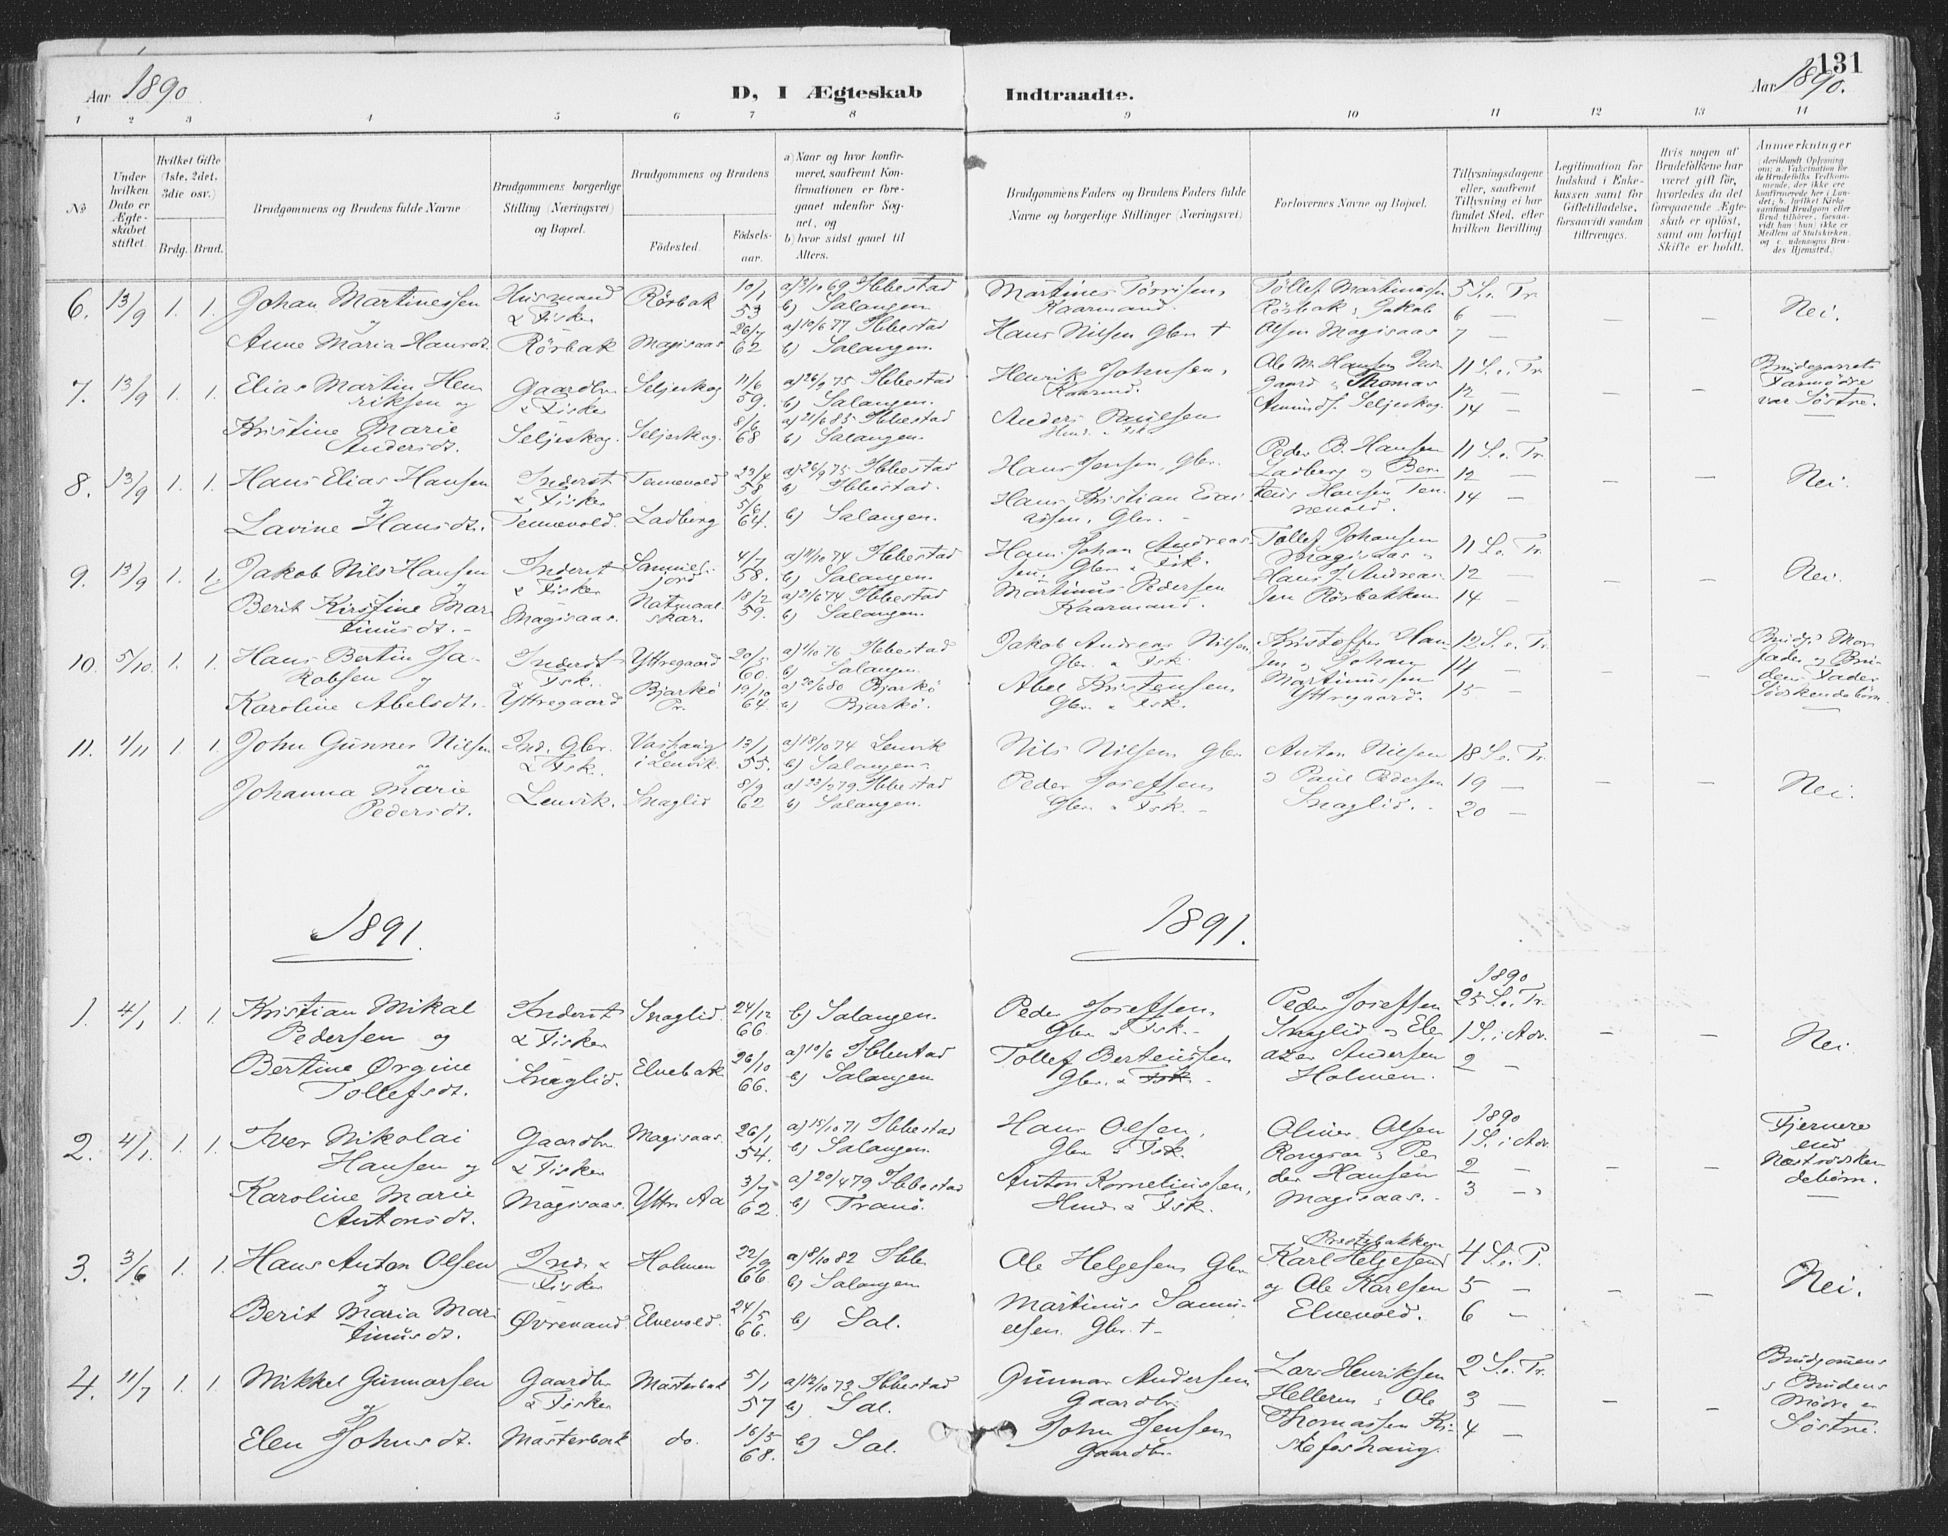 131
Aar 1890
D, I Ægteskab
Indtraadte.
Aar 1890.
1 2 3 4 5 6 7 8 9 10 11 12 13 14
No
Under hvilken Dato er Ægteskabet stiftet.
Hvilket Gifte (1ste, 2det, 3die osv.)
Brdg. Brud.
Brudgommens og Brudens fulde Navne
Brudgommens borgerlige Stilling (Næringsvei) og Bopæl.
Brudgommens og Brudens
Födested.
Födselsaar.
a) Naar og hvor konfirmeret, saafremt Konfirmationen er foregaaet udenfor Sognet, og
b) hvor sidst gaaet til Alters.
Brudgommens Faders og Brudens Faders fulde Navne og borgerlige Stillinger (Næringsvei)
Forlovernes Navne og Bopæl.
Tillysningsdagene eller, saafremt Tillysning ei har fundet Sted, efter hvilken Bevilling
Legitimation for Indskud i Enkekassen samt for Giftetilladelse, forsaavidt saadan tiltrænges.
Hvis nogen af Brudefolkene har været gift för, hvorledes da det foregaaende Ægteskab er oplöst, samt om lovligt Skifte er holdt.
Anmærkninger
6. 13/9 1. 1. Johan Martinessen Husmand Rörbak 10/1 a) 3/10 69 Ibbestad Martines Törrisen, Tollef Martinussen 5 S. e. Tr.
og & Fisker 53 b) Salangen Kaarmand. Rörbak & Jakob 6 — — — Nei.
Anne Maria Hansdt. Rörbak Magisaas 26/7 62 a) 10/6 77 Ibbestad b) Salangen. Hans Nilsen Gbr. † Olsen Magisaas 7 —
7. 13/9 1. 1. Elias Martin Henriksen og Gaardbr. & Fisker Seljeskog 11/6 59. a) 26/9 75 Ibbestad b) Salangen. Henrik Johnsen, Ole M. Hansen & Thomas 11 S. e. Tr. 12 — — Brudeparrets Farmödre var Söstre.
Kristine Marie Andersdt. Seljeskog. Seljeskog. 8/6 68 a) 21/6 85 Ibbestad b) Salangen. Anders Paulsen Amunds. Seljeskog. 14 —
8. 13/9 1. 1. Hans Elias Hansen og Inderst & Fisker Tennevold 23/4 58 a) 26/9 75 Ibbestad b) Ibbestad. Hans Jensen, Gbr. Peder B. Hansen Ladberg & Ber- 11 S. e. Tr. 12 — — — Nei.
Lavine Hansdt. Tennevold. Ladberg 5/6 64. b) Salangen. Hans Kristian Esaiassen, Gbr. — teus Hansen Tennevold. 14 —
9. 13/9 1. 1. Jakob Nils Hansen og Inderst & Fisker 4/7 58. a) 11/10 74 Ibbestad b) Salangen. Hans Johan Andreassen, Gbr. & Fisk. Tollef Johansen Magisaas & 11 S. e. Tr. 12 — — — Nei.
Berit Kirstine Martinusdt. — Magisaas. 18/2 59. a) 21/6 74 Ibbestad b) Salangen. Martinus Pedersen Kaarmand. Hans J. Andreassen Rörbakken. 14 —
10. 5/10. 1. 1. Hans Bertin Jakobsen og Inderst & Fisk. Yttregaard 20/5 60. a) 1/10 76 Ibbestad b) Salangen. Jakob Andreas Nilsen, Gbr. & Fisk. Kristoffer Hansen & Johan 12 S. e. Tr. 14 — — —
Karoline Abelsdt. Yttregaard Bjarkö Pr. 19/10 64. a) 20/6 80 Bjarkö b) Bjarkö. Abel Kristensen, Gbr. & Fisk. Martinussen Yttregaard. 15 — Södskendebörn
11. 2/11 1. 1. John Gunner Nilsen og Ind. Gbr. & Fisk. Vashaug i Lenvik. 13/1 55. a) 18/10 74 Lenvik b) Salangen. Nils Nilsen, Gbr. Anton Nilsen & Paul Pedersen 18 S. e. Tr. 19 — — — Nei.
Johanna Marie Pedersdt. Lenvik. Snaglid 8/9 62 a) 23/2 79 Ibbestad b) Salangen. Peder Joseffsen, Gbr. & Fisk. — Snaglid. — 20 —
1891. 1891.
1. 4/1 1. 1. Kristian Mikal Pedersen og Inderst & Fisker Snaglid. 24/12 66. b) Salangen. Peder Joseffsen, Gbr. & Fisk. — Peder Joseffsen Snaglid & Ele- 1890 25 S. e. Tr. 1 S. i Adv. — — Nei.
Bertine Örgine Tollefsdt. Snaglid. Elvebak 26/10 66. a) 10/6 Ibbestad b) Salangen Tollef Berteussen Gbr. & Fisk. — azer Andersen Holmen. 2 —
2. 4/1. 1. 1. Iver Nikolai Hansen og Gaardbr. & Fisker Magisaas. 26/1 54. a) 15/10 71 Ibbestad b) Salangen. Hans Olsen, Gbr. & Fisk. Oliver Olsen & Pe- 1890 1 S. i Adv. 2 — — — Fjernere end Næstsödskendebörn.
Karoline Marie Antonsdt. Magisaas. Yttre Aa 3/7 62. a) 20/4 79 Ibbestad b) Tranö. Anton Korneliussen, Husm. & Fisk. der Hansen Magisaas. — 3 —
3. 3/6 1. 1. Hans Anton Olsen og Ind. & Fisker Holmen 22/9 66 a) 8/10 82 Ibb. b) Salangen Ole Helgesen Gbr. Prestbakken Karl Helgesen & Ole Karlsen 4 S. e. P. 5 — — — Nei.
Berit Maria Martinusdt. Övrevand. Elvevold. 24/5 66. b) Sal. Martinus Samuelsen. Gbr. † Elvevold. 6 —
4. 11/7 1. 1. Mikkel Gunnarsen og Gaardbr. & Fisker Mosterbak 5/1 57 a) 12/10 73 Ibbestad b) Sal. Gunnar Andersen Gaardbr. Lars Henriksen Helleren & Ole 2 S. e. Tr. 3 — — — Brudgomens & Brudens Mödre er Söstre.
Elen Johnsdt. Mosterbak do. 16/5 68. b) Sal. John Jensen, Gaardbr. Thomassen Kristofershaug. 4 —